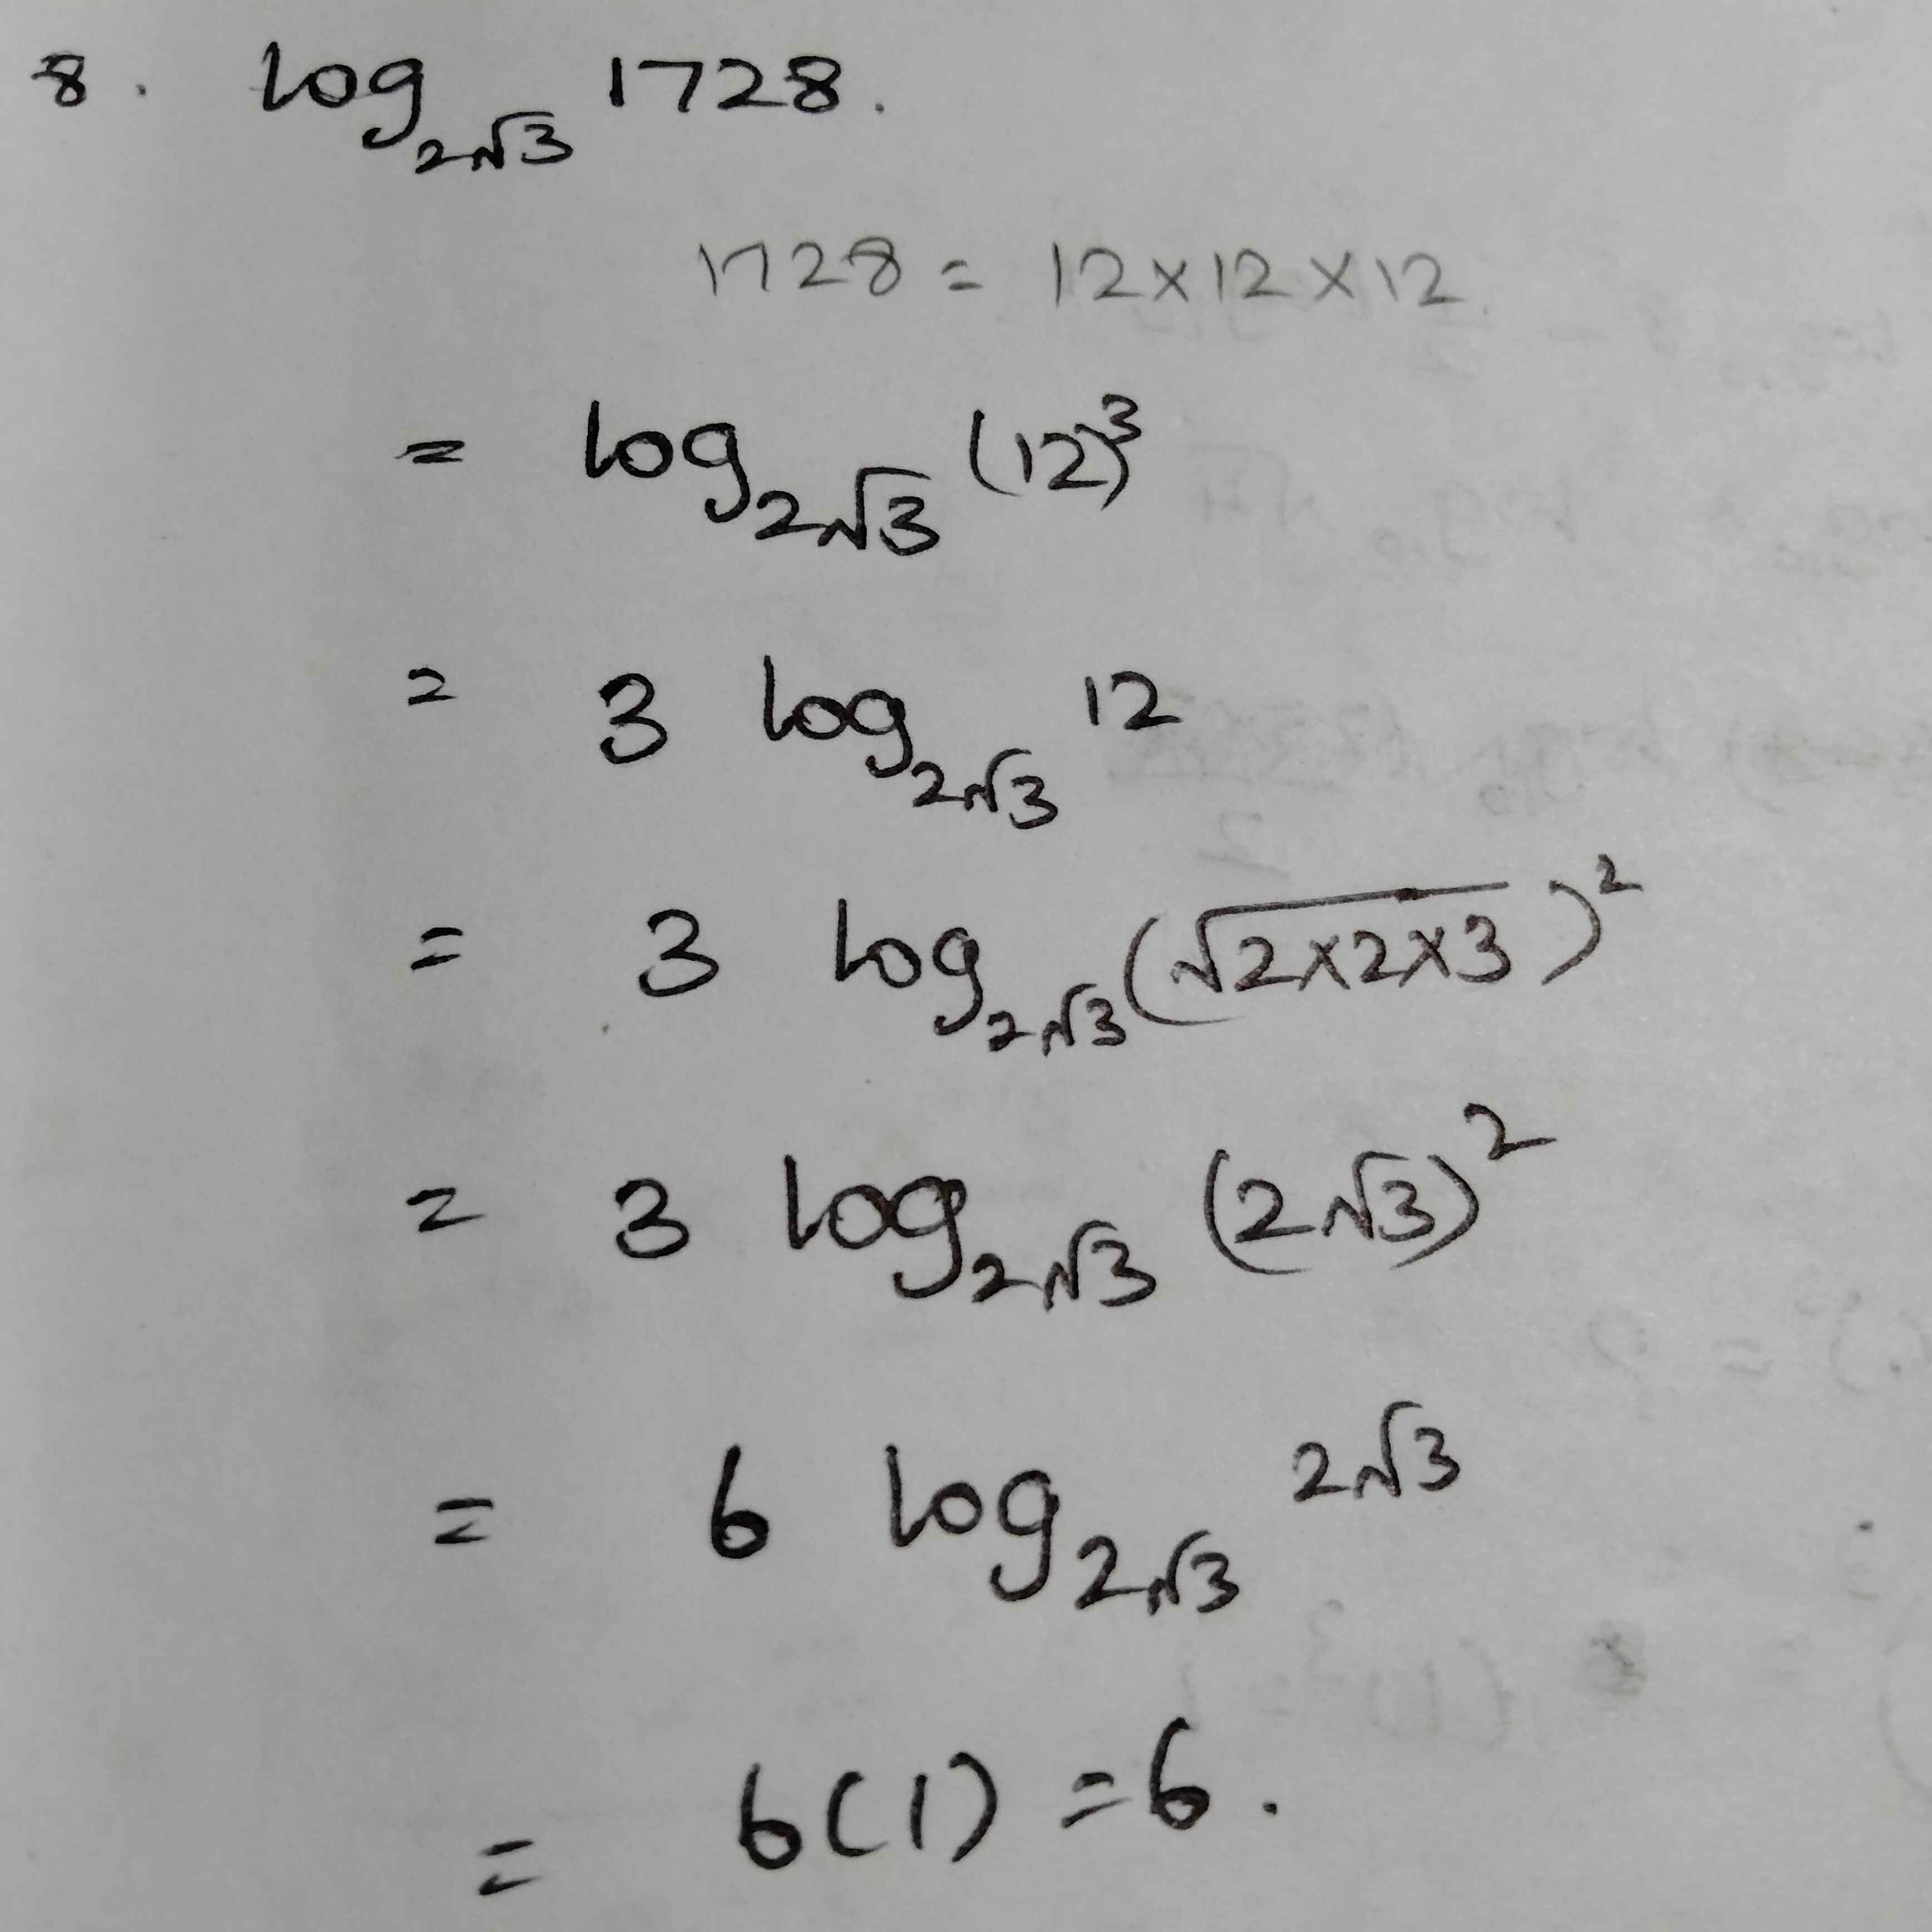 8. log₂√3 1728.
1728 = 12×12×12
= log₂√3 (12)³
= 3 log₂√3 12
= 3 log₂√3 (√2×2×3)²
= 3 log₂√3 (2√3)²
= 6 log₂√3 2√3
= 6(1) = 6.